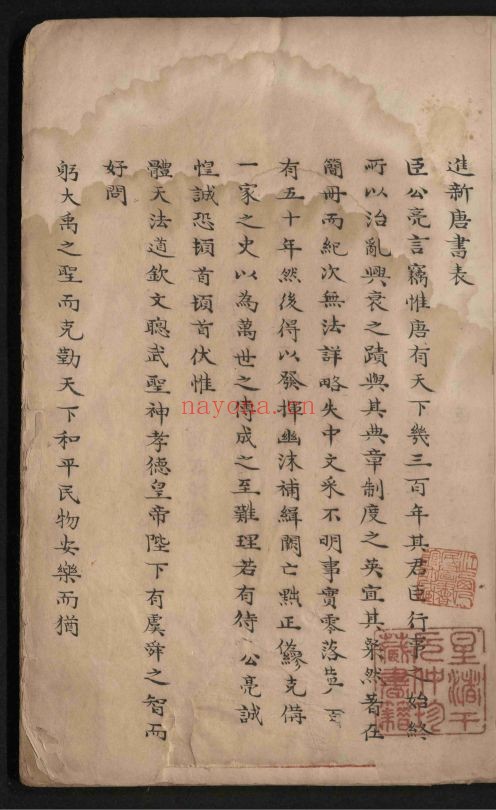 進新唐書表
臣公亮言竊惟唐有天下幾三百年其君臣行事之始終
所以治亂興衰之蹟與其典章制度之英宜其粲然著在
簡冊而紀次無法詳略失中文采不明事實零落葢百
有五十年然後得以發揮幽沬補緝闕亡黜正偽繆克備
一家之史以為萬世之傳成之至難理若有待公亮誠
惶誠恐頓首頓首伏惟
體天法道欽文聰武聖神孝德皇帝陛下有虞舜之智而
好問
躬大禹之聖而克勤天下和平民物安樂而猶
星渚干
元仲珍
藏書籍
nayona.cn